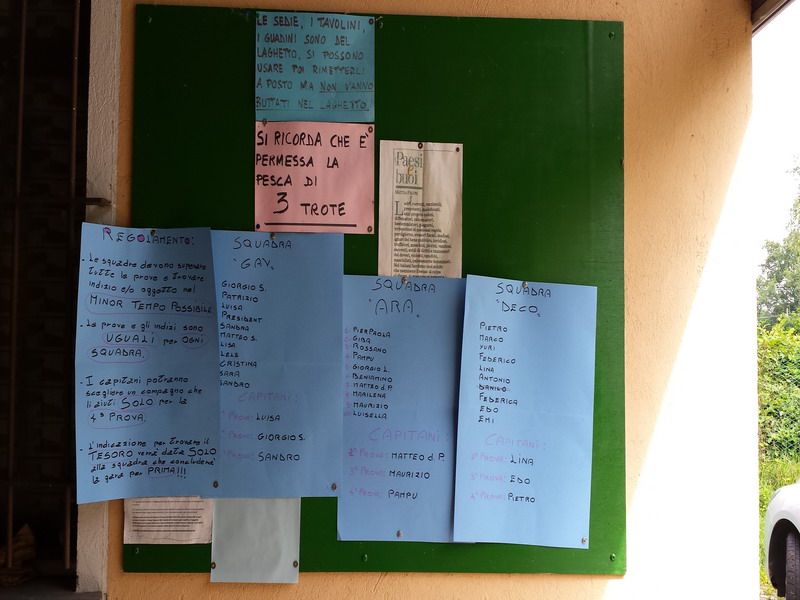 LE SEDIE, I TAVOLINI,
I GUADINI SONO DEL
LAGHETTO, SI POSSONO
USARE POI RIMETTERLI
A POSTO MA NON VANNO
BUTTATI NEL LAGHETTO.
SI RICORDA CHE E'
PERMESSA LA
PESCA DI
3 TROTE
Paesi
e
buoi
REGOLAMENTO:
- Le squadre devono superare
tutte le prove e trovare
indizio e/o oggetto nel
MINOR TEMPO POSSIBILE
- Le prove e gli indizi sono
UGUALI per OGNI
SQUADRA.
- I capitani potranno
scegliere un compagno che
li aiuti SOLO per la
4ª PROVA.
- L'indicazione per trovare il
TESORO verrà data SOLO
alla squadra che concluderà
la gara per PRIMA!!!
SQUADRA
"GAV"
GIORGIO S.
PATRIZIO
LUISA
PRESIDENT
SANDRA
MATTEO S.
LISA
LELE
CRISTINA
SARA
SANDRO
CAPITANI:
PROVA: LUISA
PROVA: GIORGIO S.
PROVA: SANDRO
SQUADRA
"ARA"
PIERPAOLA
GIBA
ROSSANO
PAMPU
GIORGIO L.
BENIAMINO
MATTEO d.P.
MARILENA
MAURIZIO
LUISELLA
CAPITANI:
2ª PROVA: MATTEO d.P.
3ª PROVA: MAURIZIO
4ª PROVA: PAMPU
SQUADRA
"DECO"
PIETRO
MARCO
YURI
FEDERICO
LINA
ANTONIO
DANILO
FEDERICA
EDO
EMI
CAPITANI:
2ª PROVA: LINA
3ª PROVA: EDO
4ª PROVA: PIETRO